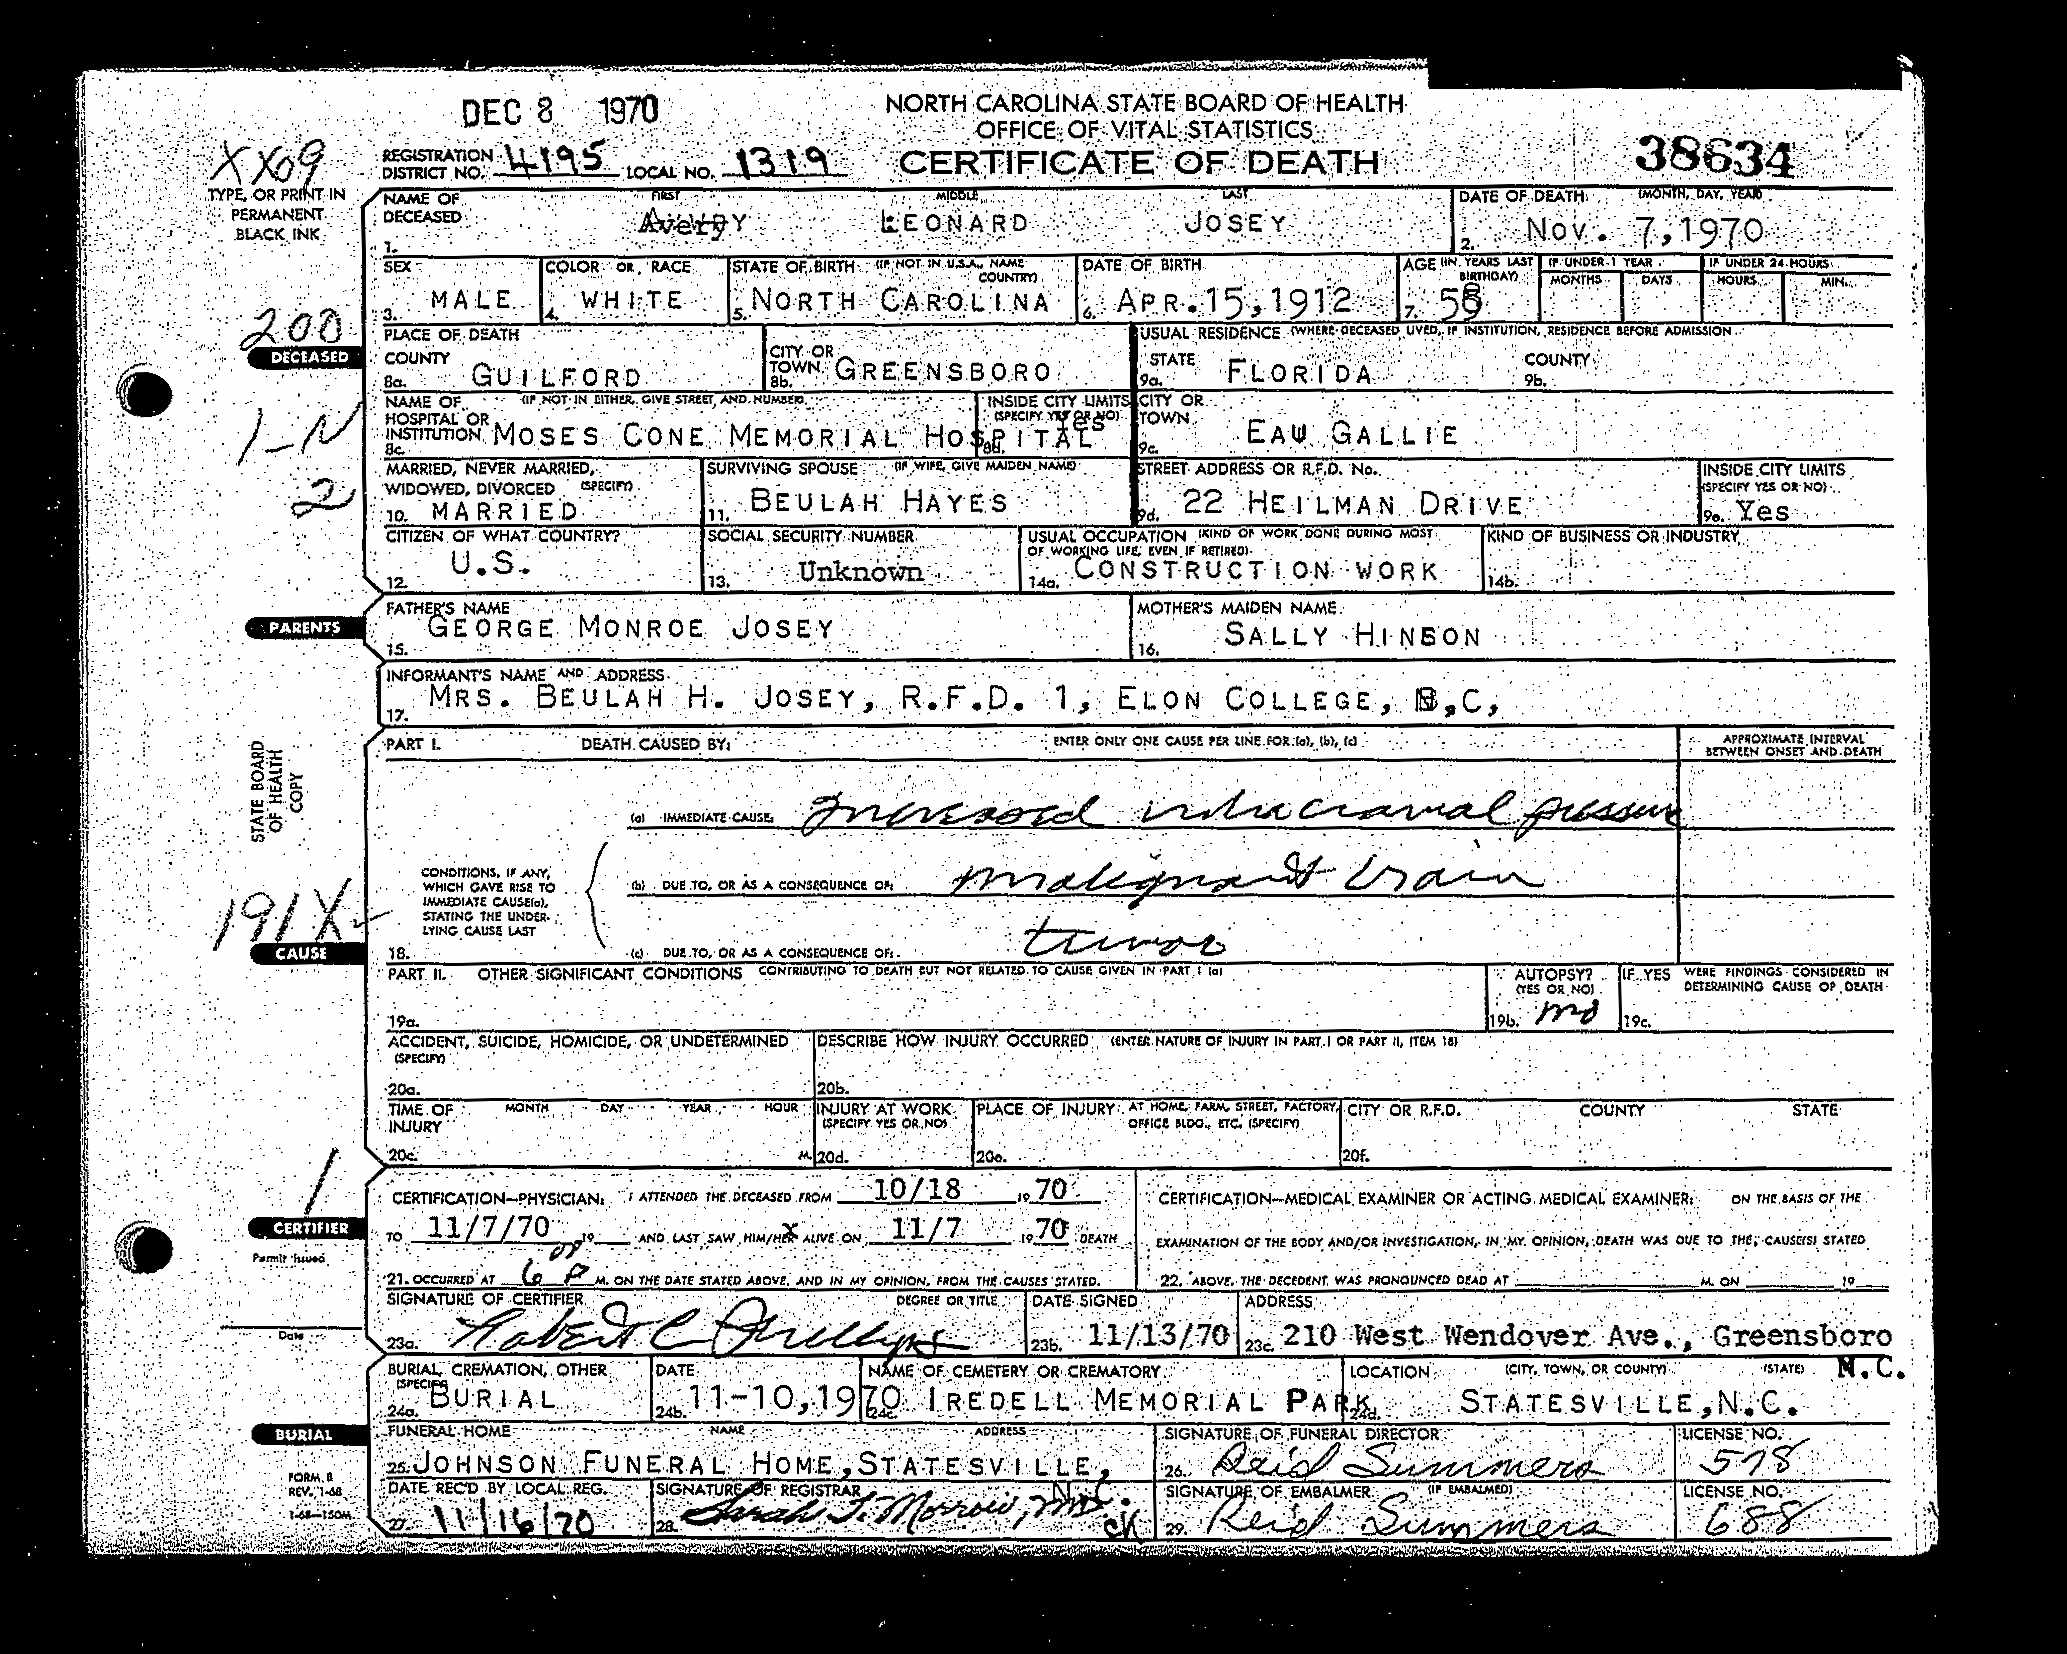 DEC 8 1970
NORTH CAROLINA STATE BOARD OF HEALTH
OFFICE OF VITAL STATISTICS
CERTIFICATE OF DEATH
38634
XX09
REGISTRATION DISTRICT NO. 4195 LOCAL NO. 1319
TYPE, OR PRINT IN
PERMANENT
BLACK INK
NAME OF DECEASED FIRST MIDDLE LAST
1. Avery LEONARD JOSEY
DATE OF DEATH (MONTH, DAY, YEAR)
2. Nov. 7,1970
SEX
3. MALE
COLOR OR RACE
4. WHITE
STATE OF BIRTH (IF NOT IN U.S.A., NAME COUNTRY)
5. NORTH CAROLINA
DATE OF BIRTH
6. APR. 15,1912
AGE (IN YEARS LAST BIRTHDAY)
7. 58
IF UNDER 1 YEAR
MONTHS DAYS
IF UNDER 24 HOURS
HOURS MIN.
200
DECEASED
PLACE OF DEATH
COUNTY
8a. GUILFORD
CITY OR TOWN
8b. GREENSBORO
USUAL RESIDENCE (WHERE DECEASED LIVED, IF INSTITUTION, RESIDENCE BEFORE ADMISSION
STATE
9a. FLORIDA
COUNTY
9b.
1-N
NAME OF HOSPITAL OR INSTITUTION (IF NOT IN EITHER, GIVE STREET AND NUMBER)
8c. MOSES CONE MEMORIAL HOSPITAL
INSIDE CITY LIMITS (SPECIFY YES OR NO)
8d. Yes
CITY OR TOWN
9c. EAU GALLIE
2
MARRIED, NEVER MARRIED, WIDOWED, DIVORCED (SPECIFY)
10. MARRIED
SURVIVING SPOUSE (IF WIFE, GIVE MAIDEN NAME)
11. BEULAH HAYES
STREET ADDRESS OR R.F.D. No.
9d. 22 HEILMAN DRIVE
INSIDE CITY LIMITS (SPECIFY YES OR NO)
9e. Yes
CITIZEN OF WHAT COUNTRY?
12. U.S.
SOCIAL SECURITY NUMBER
13. Unknown
USUAL OCCUPATION (KIND OF WORK DONE DURING MOST OF WORKING LIFE, EVEN IF RETIRED)
14a. CONSTRUCTION WORK
KIND OF BUSINESS OR INDUSTRY
14b.
PARENTS
FATHER'S NAME
15. GEORGE MONROE JOSEY
MOTHER'S MAIDEN NAME
16. SALLY HINSON
INFORMANT'S NAME AND ADDRESS
17. MRS. BEULAH H. JOSEY, R.F.D. 1, ELON COLLEGE, N,C,
STATE BOARD
OF HEALTH
COPY
PART I. DEATH CAUSED BY: ENTER ONLY ONE CAUSE PER LINE FOR (a), (b), (c)
APPROXIMATE INTERVAL BETWEEN ONSET AND DEATH
(a) IMMEDIATE CAUSE: Increased intracranial pressure
CONDITIONS, IF ANY,
WHICH GAVE RISE TO
IMMEDIATE CAUSE(a),
STATING THE UNDER-
LYING CAUSE LAST
(b) DUE TO, OR AS A CONSEQUENCE OF: malignant brain
191X
CAUSE
18. (c) DUE TO, OR AS A CONSEQUENCE OF: tumor
PART II. OTHER SIGNIFICANT CONDITIONS CONTRIBUTING TO DEATH BUT NOT RELATED TO CAUSE GIVEN IN PART I (a)
19a.
AUTOPSY? (YES OR NO)
19b. no
IF YES WERE FINDINGS CONSIDERED IN DETERMINING CAUSE OF DEATH
19c.
ACCIDENT, SUICIDE, HOMICIDE, OR UNDETERMINED (SPECIFY)
20a.
DESCRIBE HOW INJURY OCCURRED (ENTER NATURE OF INJURY IN PART I OR PART II, ITEM 18)
20b.
TIME OF INJURY MONTH DAY YEAR HOUR
20c. M.
INJURY AT WORK (SPECIFY YES OR NO)
20d.
PLACE OF INJURY AT HOME, FARM, STREET, FACTORY, OFFICE BLDG., ETC. (SPECIFY)
20e.
CITY OR R.F.D. COUNTY STATE
20f.
1
CERTIFIER
Permit Issued
Date
CERTIFICATION-PHYSICIAN: I ATTENDED THE DECEASED FROM 10/18 19 70
TO 11/7/70 19 AND LAST SAW HIM/HER ALIVE ON 11/7 19 70 DEATH
21. OCCURRED AT 6 P M. ON THE DATE STATED ABOVE, AND IN MY OPINION, FROM THE CAUSES STATED.
CERTIFICATION-MEDICAL EXAMINER OR ACTING MEDICAL EXAMINER: ON THE BASIS OF THE
EXAMINATION OF THE BODY AND/OR INVESTIGATION, IN MY OPINION, DEATH WAS DUE TO THE CAUSE(S) STATED
22. ABOVE. THE DECEDENT WAS PRONOUNCED DEAD AT M. ON 19
SIGNATURE OF CERTIFIER DEGREE OR TITLE
23a. Robert C Phillips
DATE SIGNED
23b. 11/13/70
ADDRESS
23c. 210 West Wendover Ave., Greensboro N.C.
BURIAL, CREMATION, OTHER (SPECIFY)
24a. BURIAL
DATE
24b. 11-10,1970
NAME OF CEMETERY OR CREMATORY
24c. IREDELL MEMORIAL PARK
LOCATION (CITY, TOWN, OR COUNTY) (STATE)
24d. STATESVILLE,N.C.
BURIAL
FUNERAL HOME NAME ADDRESS
25. JOHNSON FUNERAL HOME,STATESVILLE, N.C.
SIGNATURE OF FUNERAL DIRECTOR
26. Reid Summers
LICENSE NO.
578
FORM 8
REV. 1-68
1-68-150M
DATE REC'D BY LOCAL REG.
27. 11/16/70
SIGNATURE OF REGISTRAR
28. Sarah T. Morrow, MD. ck
SIGNATURE OF EMBALMER (IF EMBALMED)
29. Reid Summers
LICENSE NO.
688